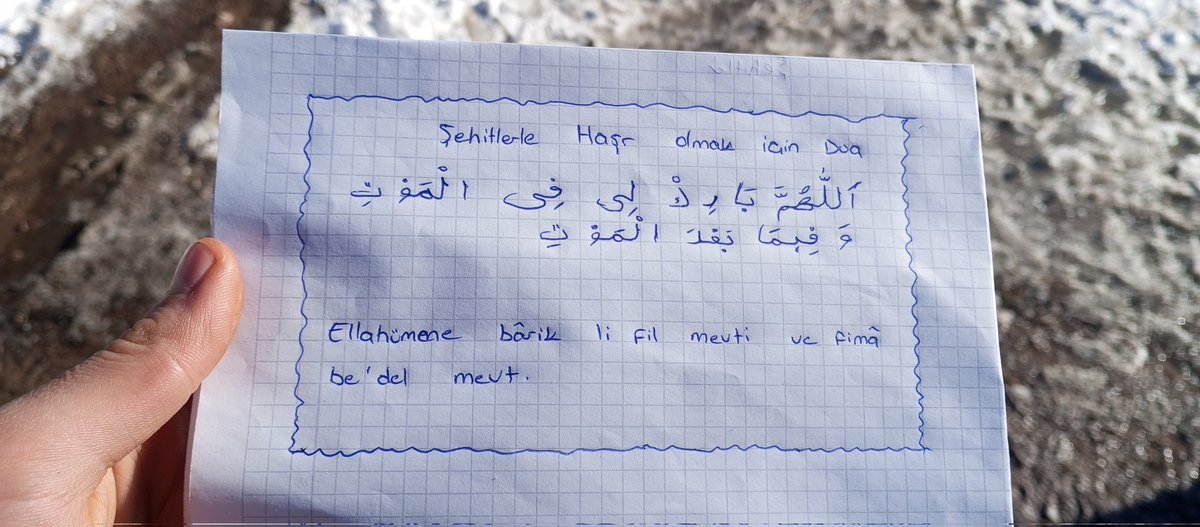 Şehitlerle Haşr olmak için Dua
اَللّٰهُمَّ بَارِكْ لِى فِى الْمَوْتِ
وَ فِيمَا بَعْدَ الْمَوْتِ
Ellahümene bârik li fil mevti ve fimâ
be'del mevt.